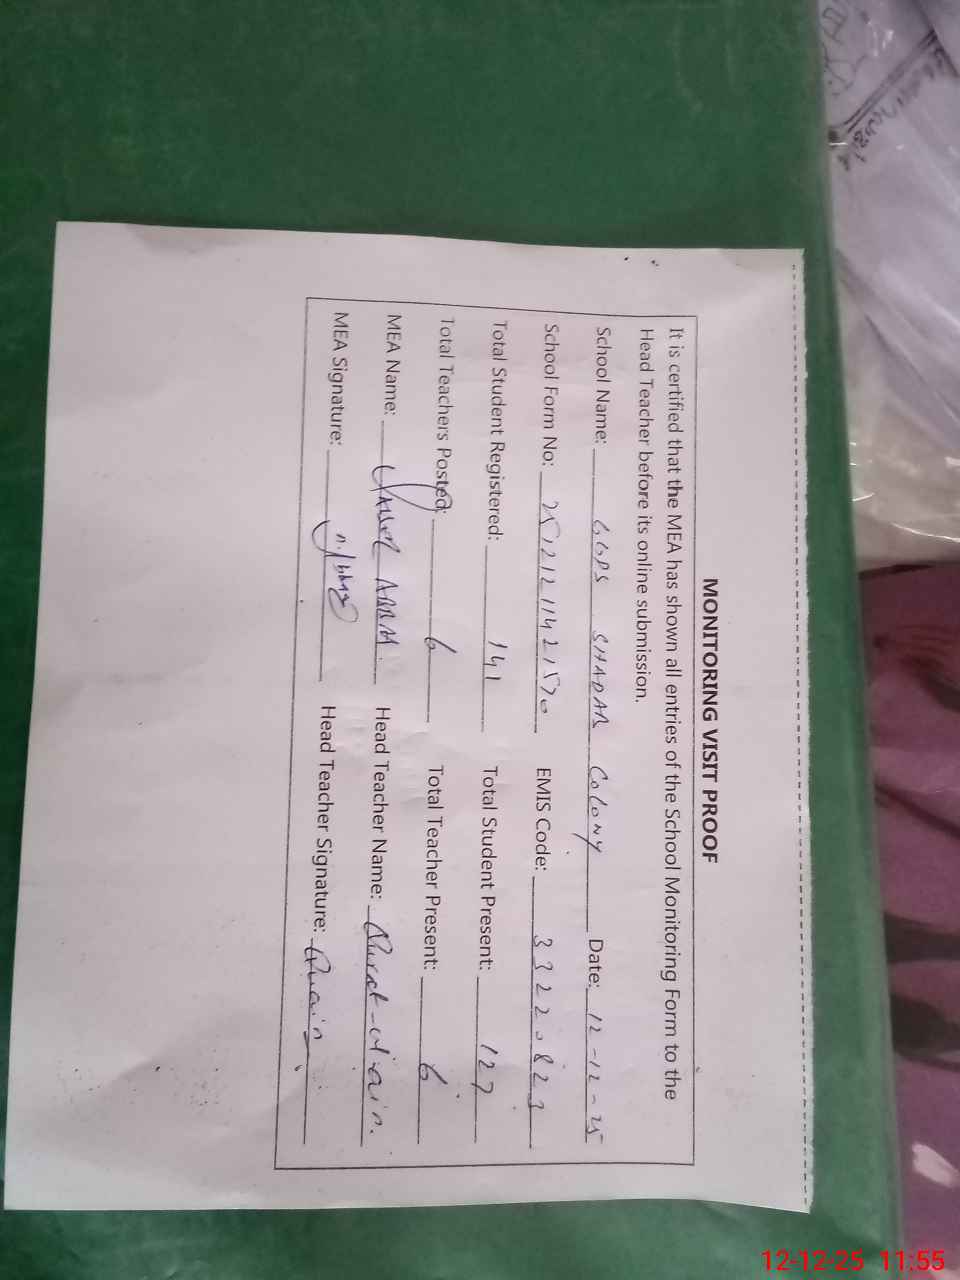 MONITORING VISIT PROOF
It is certified that the MEA has shown all entries of the School Monitoring Form to the
Head Teacher before its online submission.
School Name: GGPS SHADAB Colony Date: 12-12-25
School Form No: EMIS Code:
Total Student Registered: 141 Total Student Present: 127
Total Teachers Posted: 6 Total Teacher Present: 6
MEA Name: Head Teacher Name: Qurat-ul-ain.
MEA Signature: Head Teacher Signature: Qurain
12-12-25 11:55